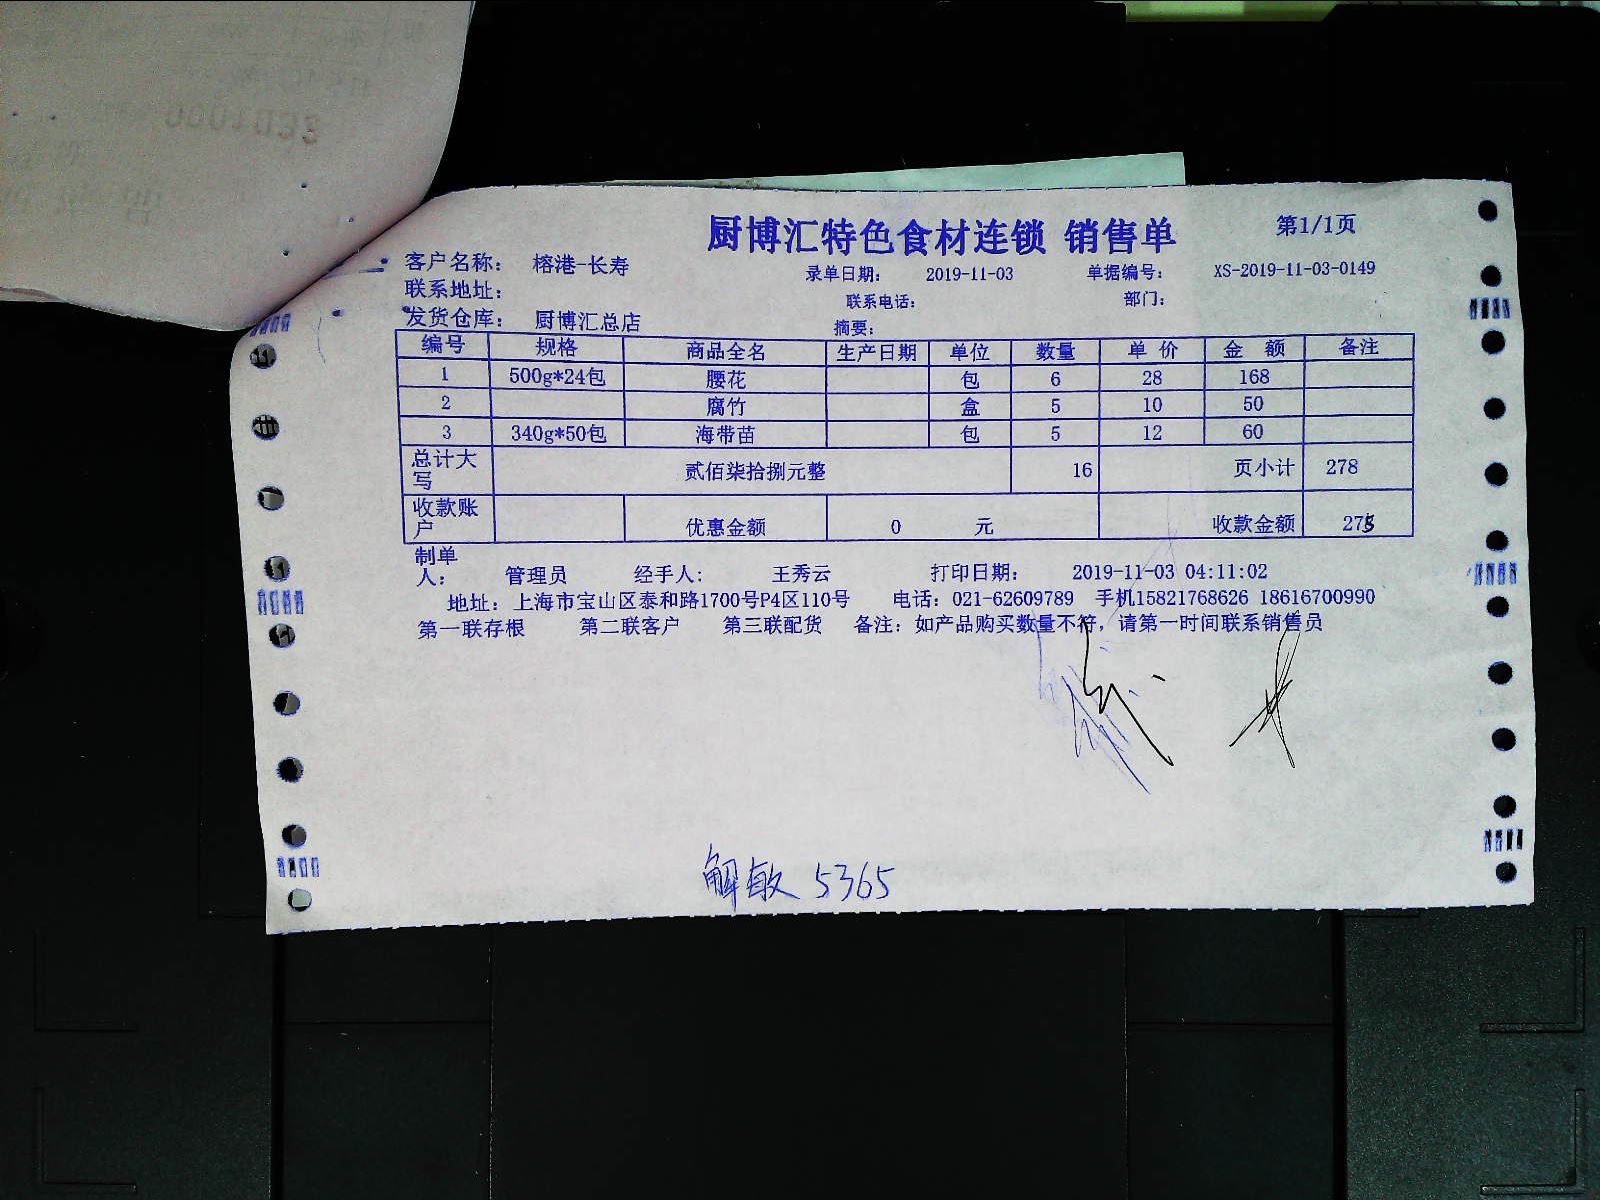 厨博汇特色食材连锁 销售单 第1/1页
客户名称: 榕港-长寿 录单日期: 2019-11-03 单据编号: XS-2019-11-03-0149
联系地址: 联系电话: 部门:
发货仓库: 厨博汇总店 摘要:
编号 规格 商品全名 生产日期 单位 数量 单 价 金 额 备注
1 500g*24包 腰花 包 6 28 168
2 腐竹 盒 5 10 50
3 340g*50包 海带苗 包 5 12 60
总计大写 贰佰柒拾捌元整 16 页小计 278
收款账户 优惠金额 0 元 收款金额 275
制单人: 管理员 经手人: 王秀云 打印日期: 2019-11-03 04:11:02
地址: 上海市宝山区泰和路1700号P4区110号 电话: 021-62609789 手机15821768626 18616700990
第一联存根 第二联客户 第三联配货 备注: 如产品购买数量不符, 请第一时间联系销售员
解敏 5365